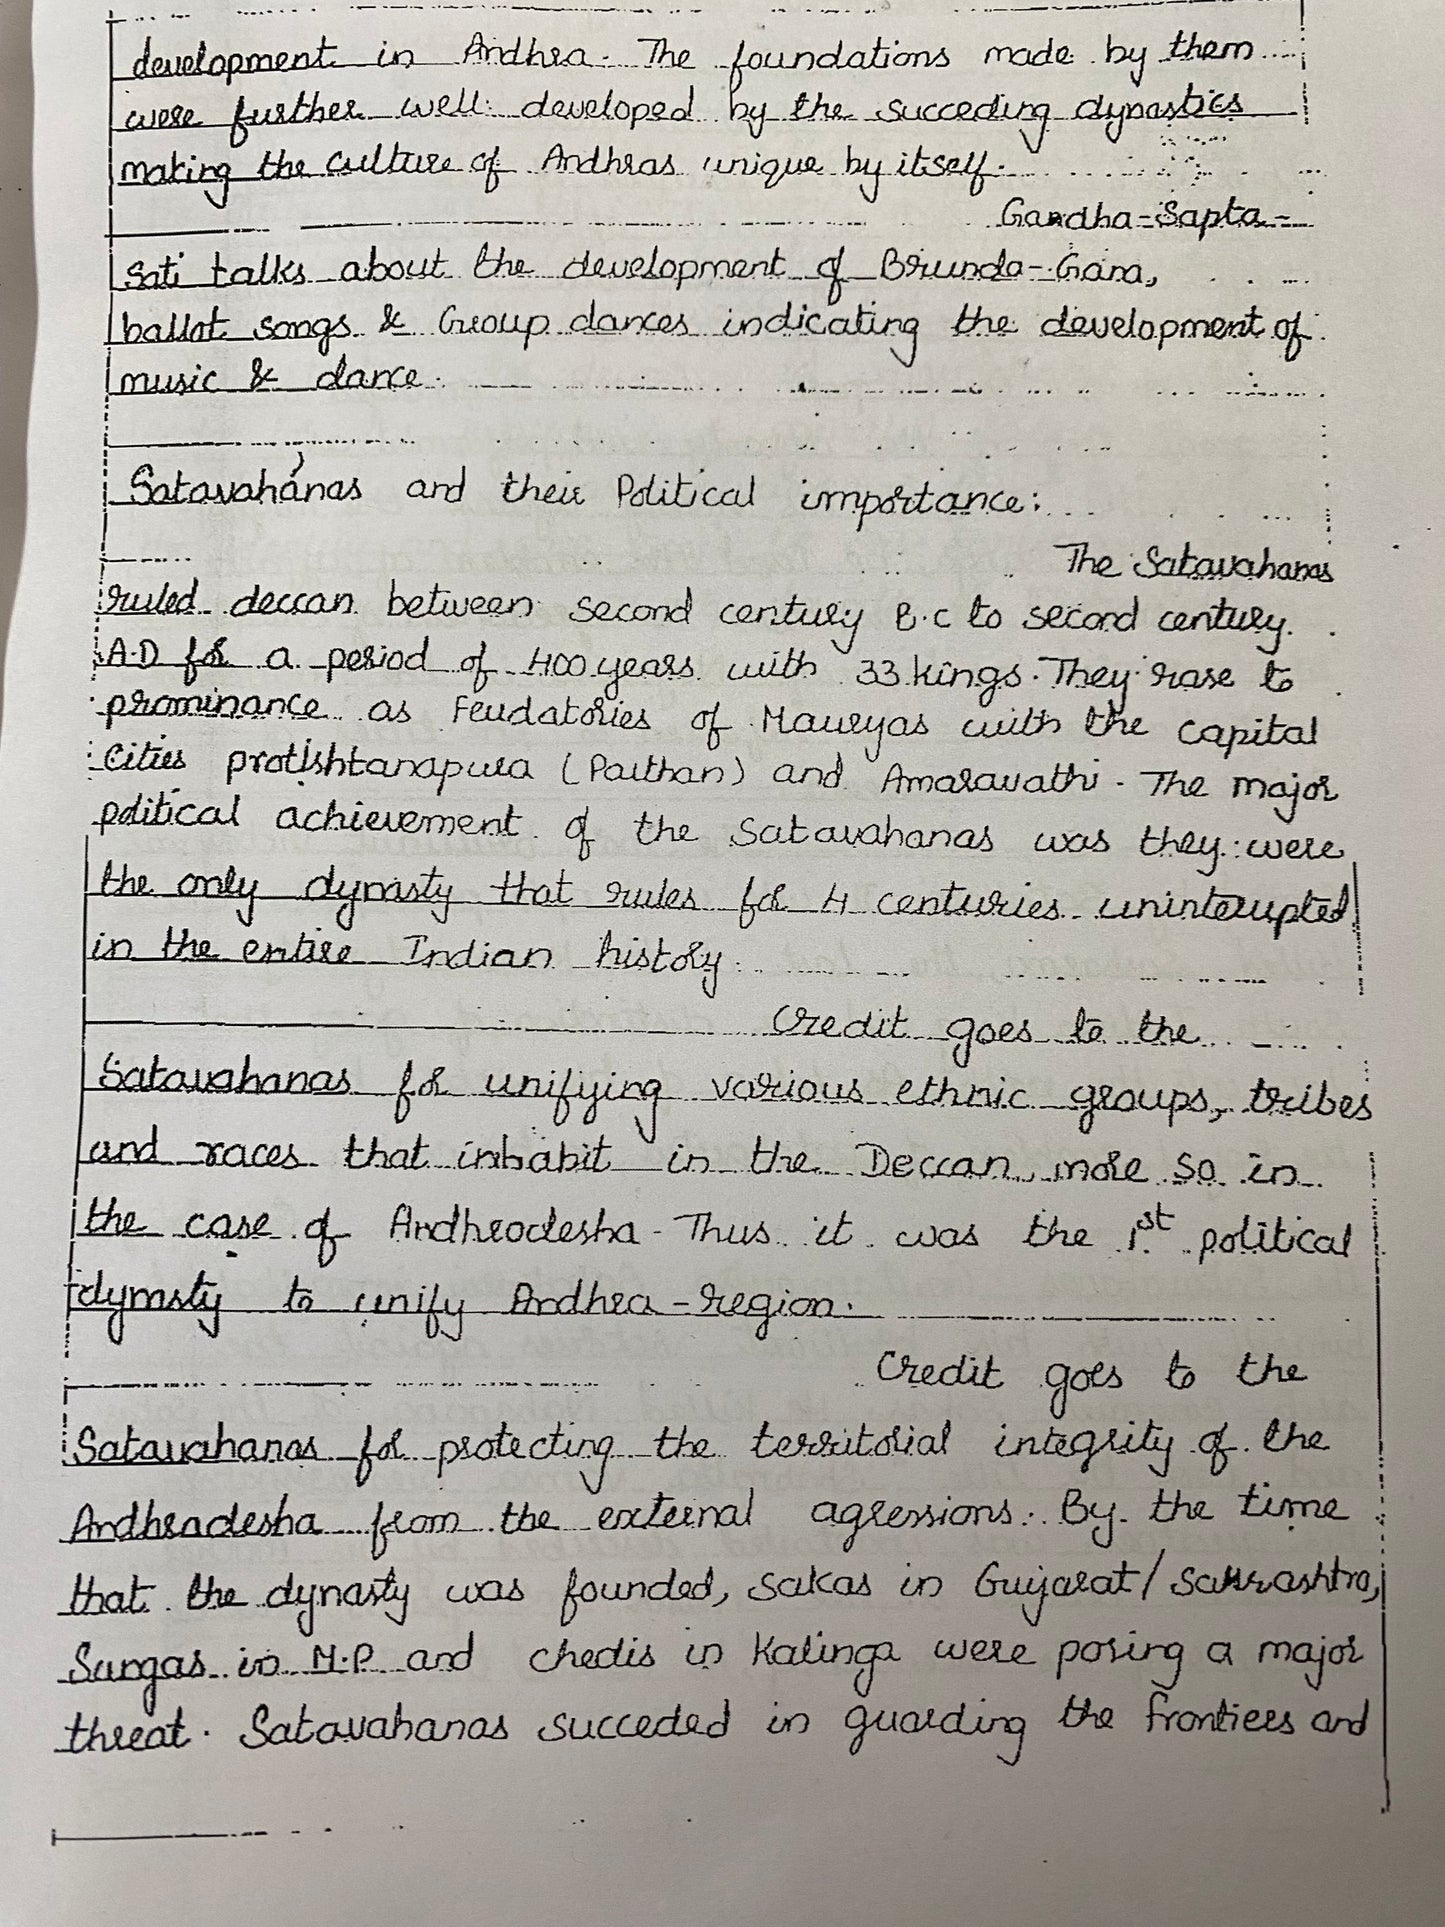 development in Andhra. The foundations made by them
were further well developed by the succeding dynastics
making the culture of Andhras unique by itself.
Gandha-Sapta-
Sati talks about the development of Brunda-Gana,
ballot songs & Group dances indicating the development of
music & dance.
Satavahanas and their Political importance:
The Satavahanas
ruled deccan between second century B.C to second century
A.D for a period of 400 years with 33 kings. They rose to
prominance as Feudatories of Mauryas with the capital
cities protishtanapura (Paithan) and Amaravathi. The major
political achievement of the Satavahanas was they were
the only dynasty that rules for 4 centuries uninterupted
in the entire Indian history.
Credit goes to the
Satavahanas for unifying various ethnic groups, tribes
and races that inhabit in the Deccan, more so in
the case of Andhradesha. Thus it was the 1st political
dynasty to unify Andhra-region.
Credit goes to the
Satavahanas for protecting the territorial integrity of the
Andhradesha from the external agressions. By the time
that the dynasty was founded, Sakas in Gujarat/Saurashtra,
Sungas in M.P and chedis in Kalinga were posing a major
threat. Satavahanas succeded in guarding the frontiers and